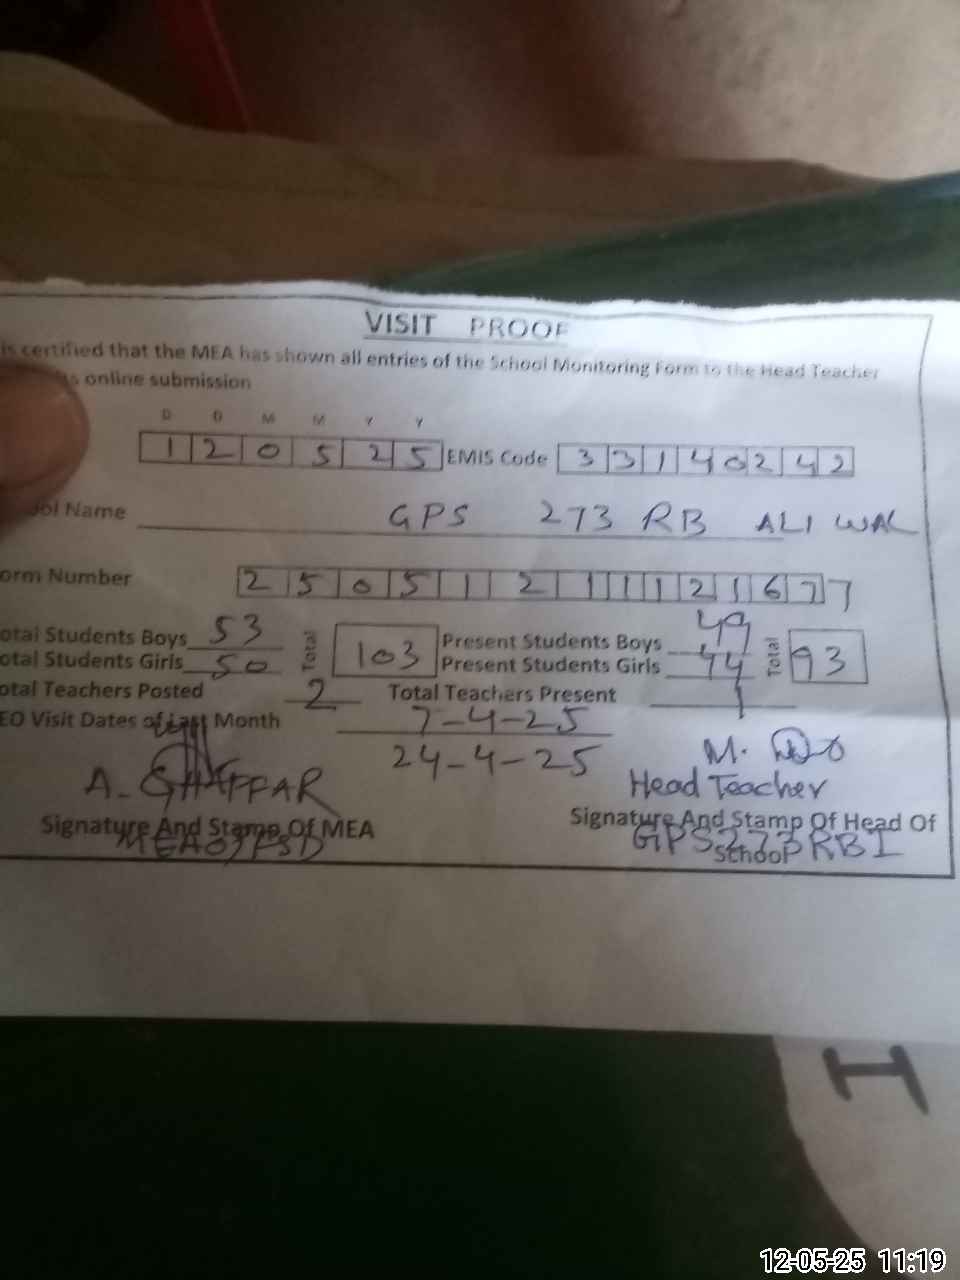 VISIT PROOF
is certified that the MEA has shown all entries of the School Monitoring Form to the Head Teacher
online submission
D D M M Y Y
1 2 0 5 2 5 EMIS Code 3 3 1 4 0 2 4 2
ool Name GPS 273 RB ALI WAL
orm Number 2 5 0 5 1 2 1 1 1 2 1 6 7 7
otal Students Boys 53 Total 103 Present Students Boys 49 Total 93
otal Students Girls 50 Present Students Girls 44
otal Teachers Posted 2 Total Teachers Present 1
EO Visit Dates of Last Month 7-4-25
24-4-25
A. GHAFFAR M.
Head Teacher
Signature And Stamp Of MEA Signature And Stamp Of Head Of
School
GPS 273 RB I
12-05-25 11:19